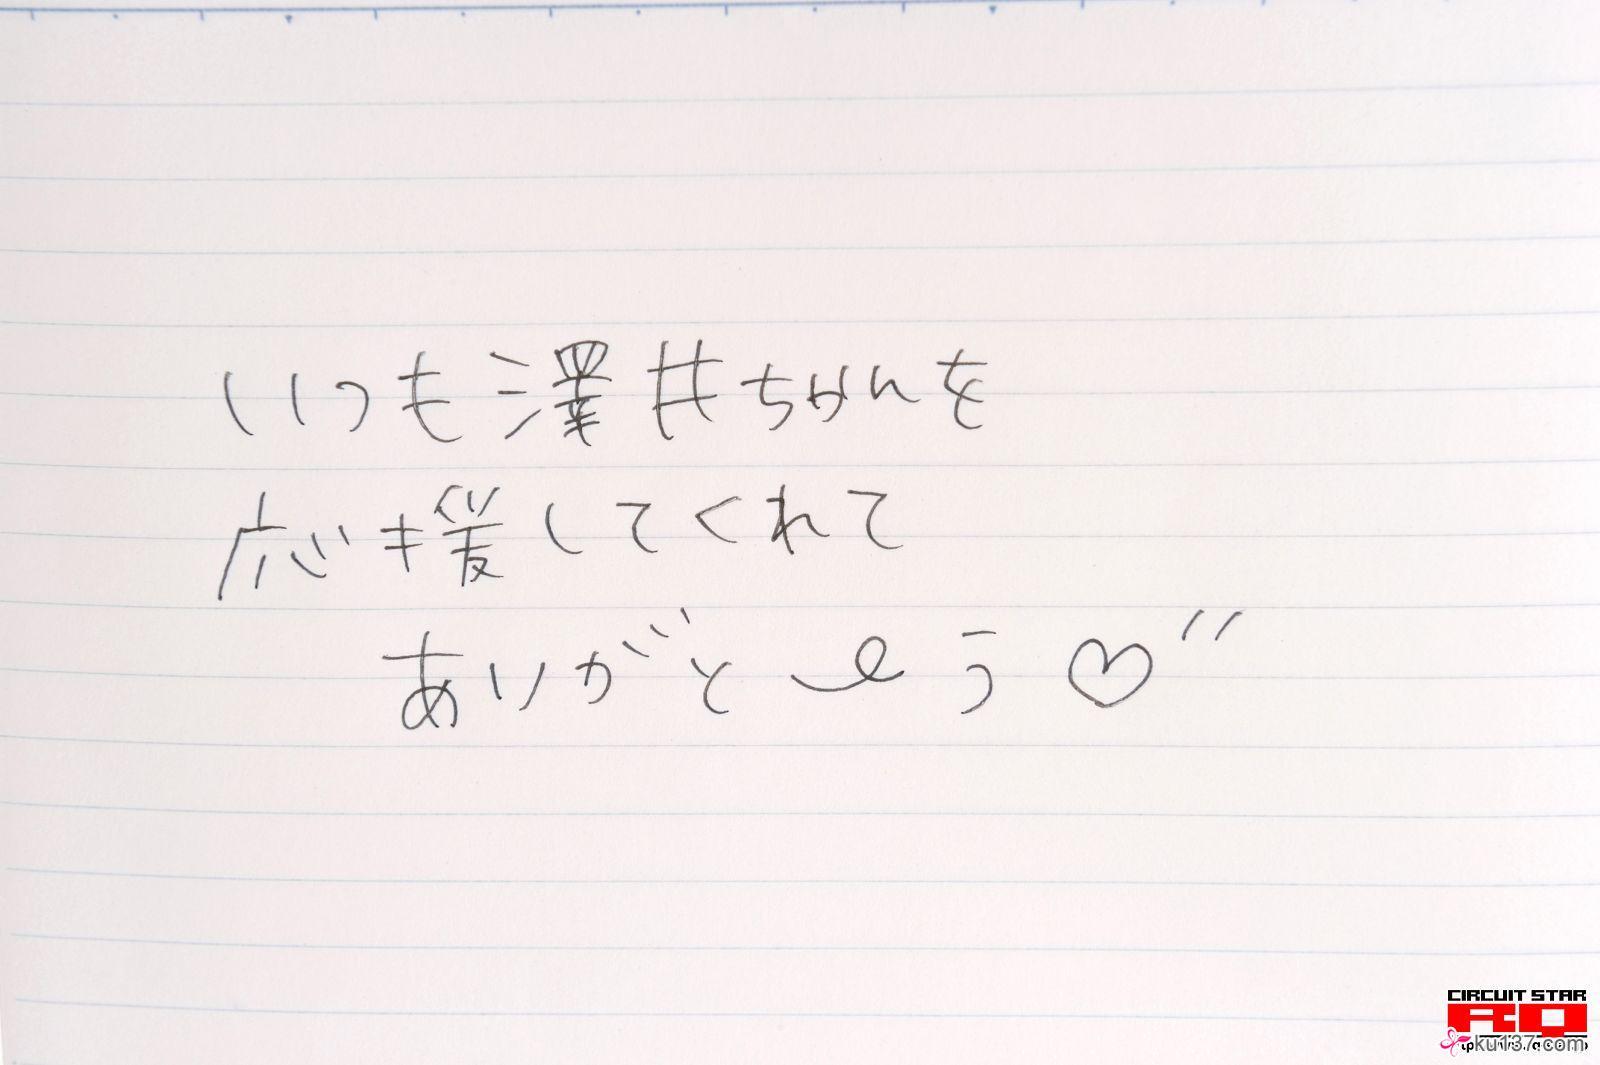 いつも澤井ちかんを
応援してくれて
ありがと〜う♡〃
CIRCUIT STAR
RQ
ku137.com